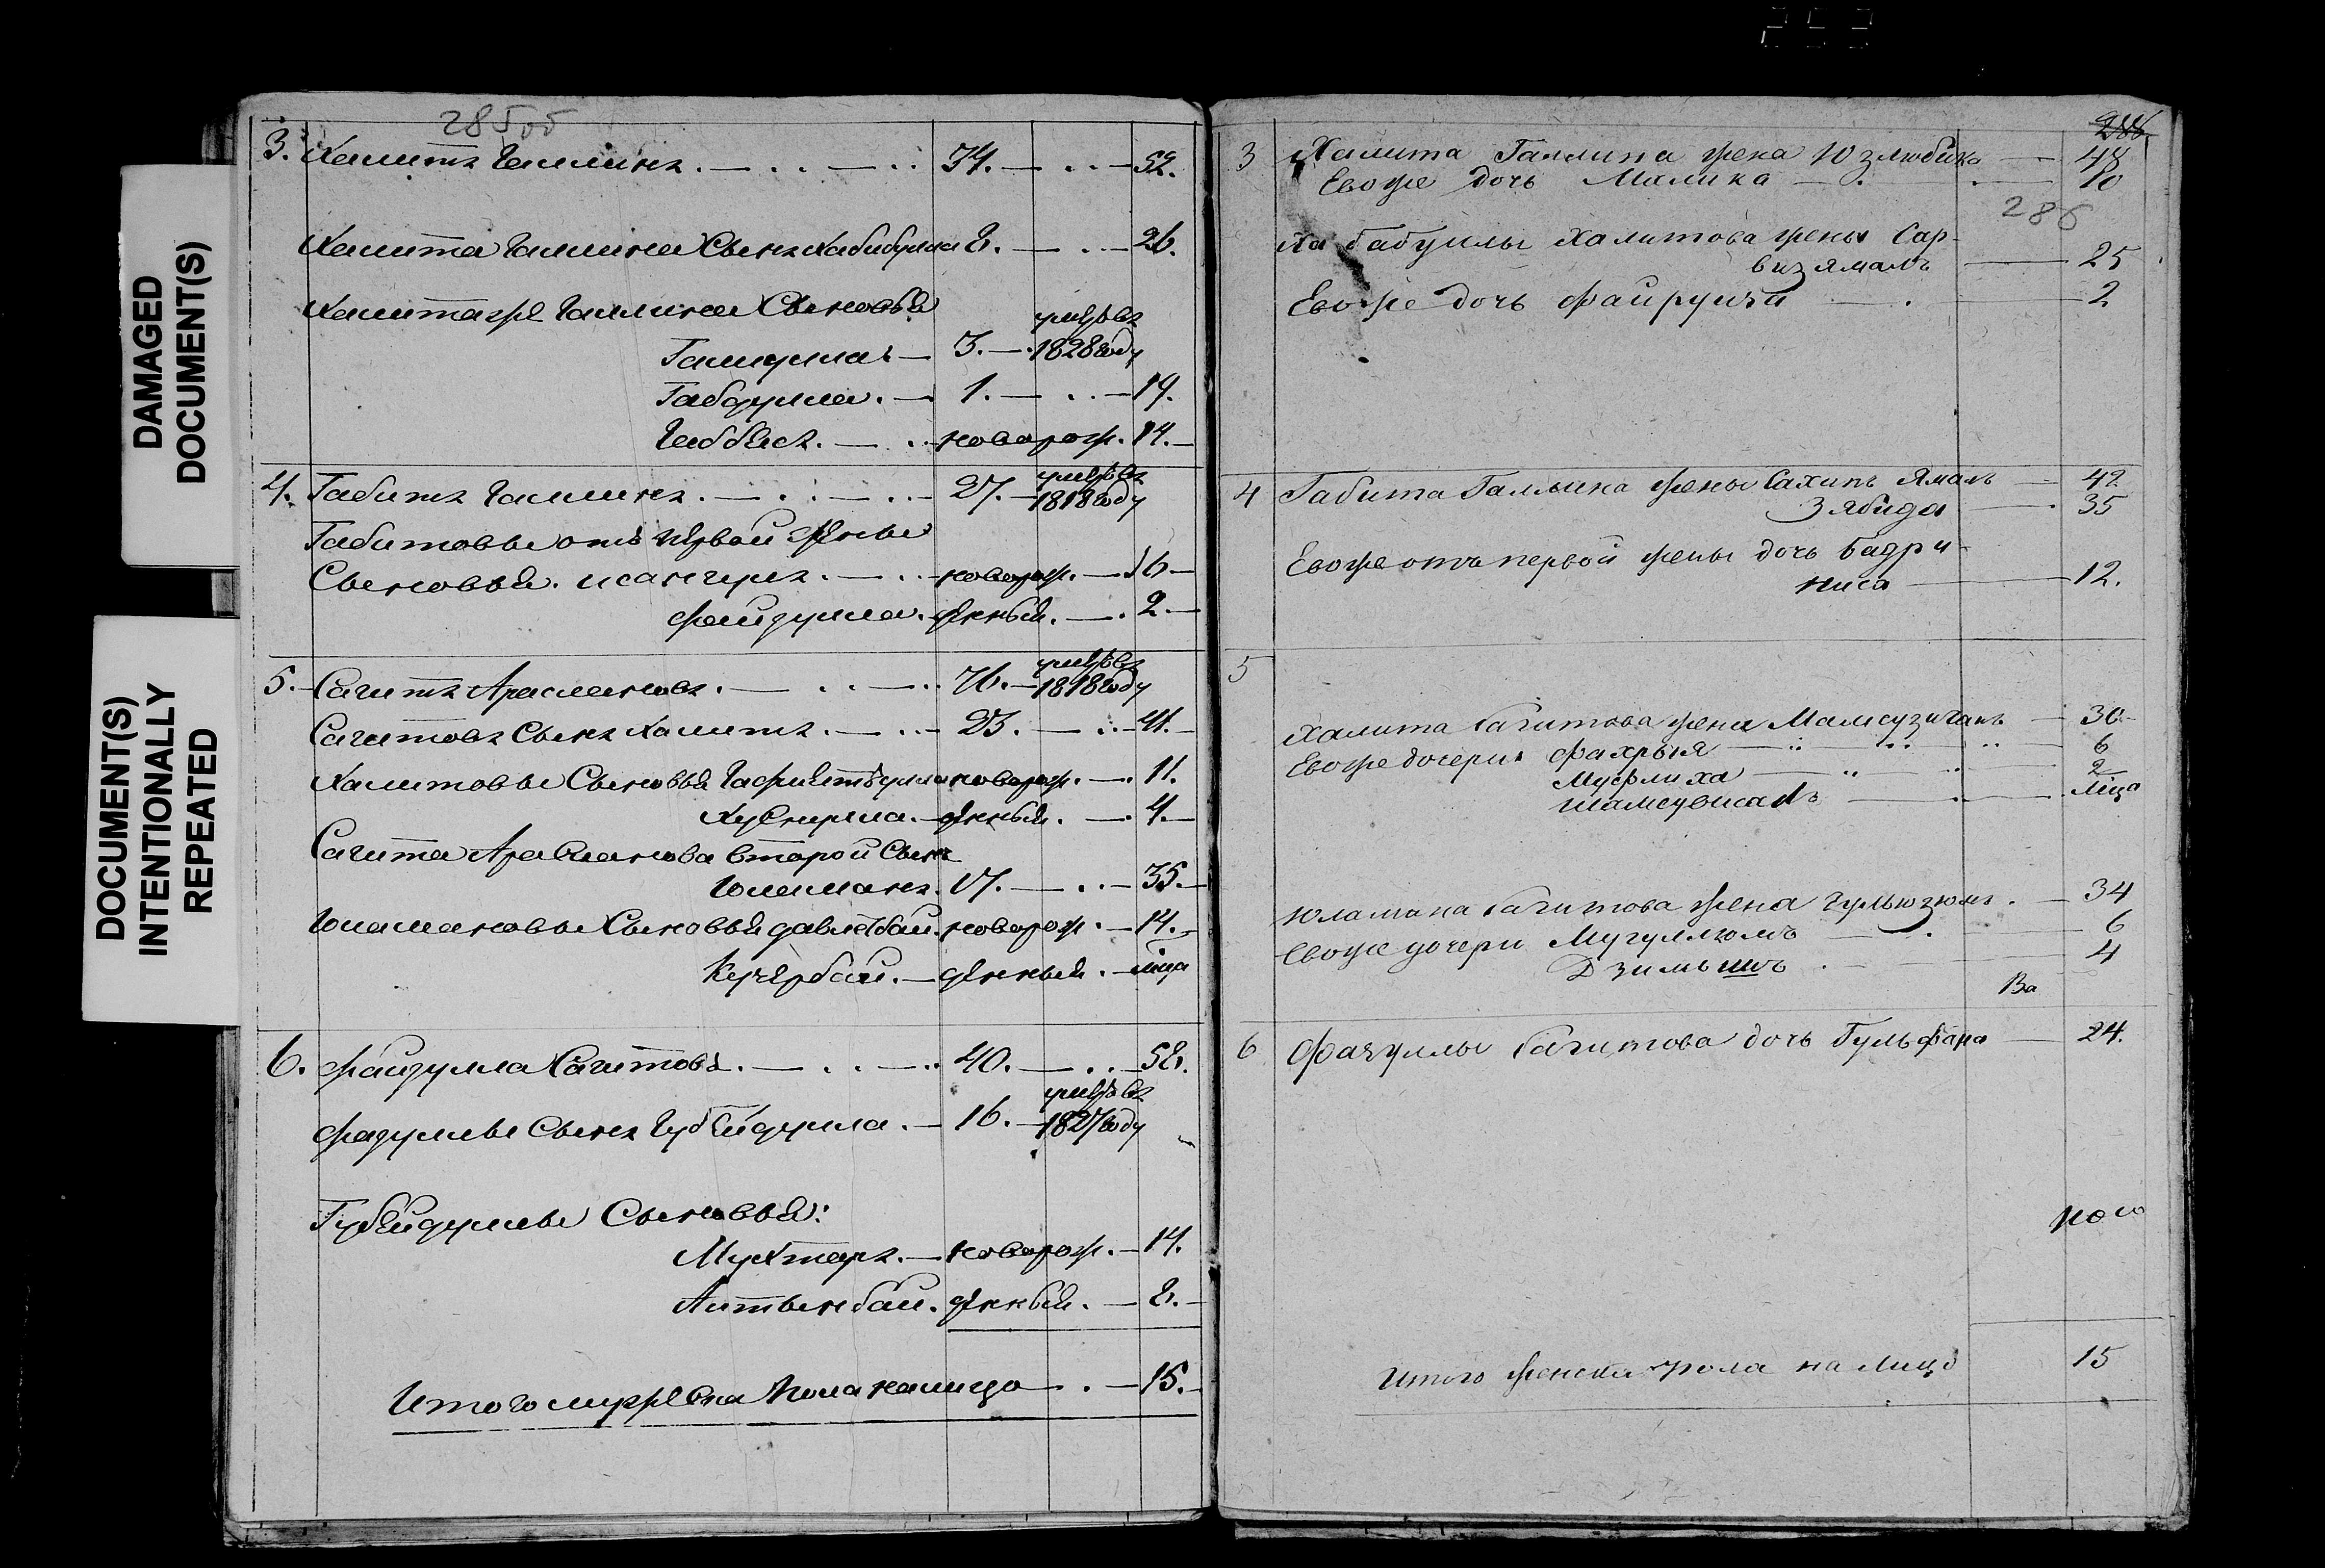 DAMAGED
DOCUMENT(S)
DOCUMENT(S)
INTENTIONALLY
REPEATED
285об
3. Халитъ Галлинъ. 34. 52.
Халита Галлина Сынъ Хабибулла 8. 26.
Халитаже Галлина Сыновья
умръ въ
3. 1828 году
Габдулла. 1. 19.
Габбасъ. новорож. 14.
4. Габитъ Галлинъ. 27. умръ въ
1818 году
Габитовы отъ первой жены
Сыновья. Исангулъ. новорож. 16
Файдулла. 2.
5. Сагитъ Арслановъ. 76. умръ въ
1818 году
Сагитовъ Сынъ Халитъ. 23. 41.
Халитовы Сыновья новорож. 11.
4.
Сагита Арсланова второй Сынъ
Юламанъ. 17. 35.
Юламановы Сыновья Давлетбай. новорож. 14.
Кучербай.
6. Файзулла Сагитовъ. 40. 58.
умръ въ
Сынъ Губейдулла. 16. 1827 году
Губейдуллы Сыновья:
Мухтаръ. новорож. 14.
Алтынбай. 8.
Итого мужеска пола налицо 15.
286
3 Халита Галлина жена Юзлюбика 48
Евоже дочь Малика 10
286
Хабибуллы Халитова жена Сар-
визямалъ 25
Евоже дочь 2
4 Габита Галлина жены Сахипъ Ямалъ 42
Зябида 35
Евоже отъ первой жены дочь Бадри-
ниса 12.
5
Халита Сагитова жена 30
Евоже дочери Фахрыя 6
Муфлиха 2
Юламана Сагитова жена Гульюзюмъ. 34
Евоже дочери 6
4
Ва
6 Фазуллы Сагитова дочь Гульфана 24.
Итого женска пола на лицо 15